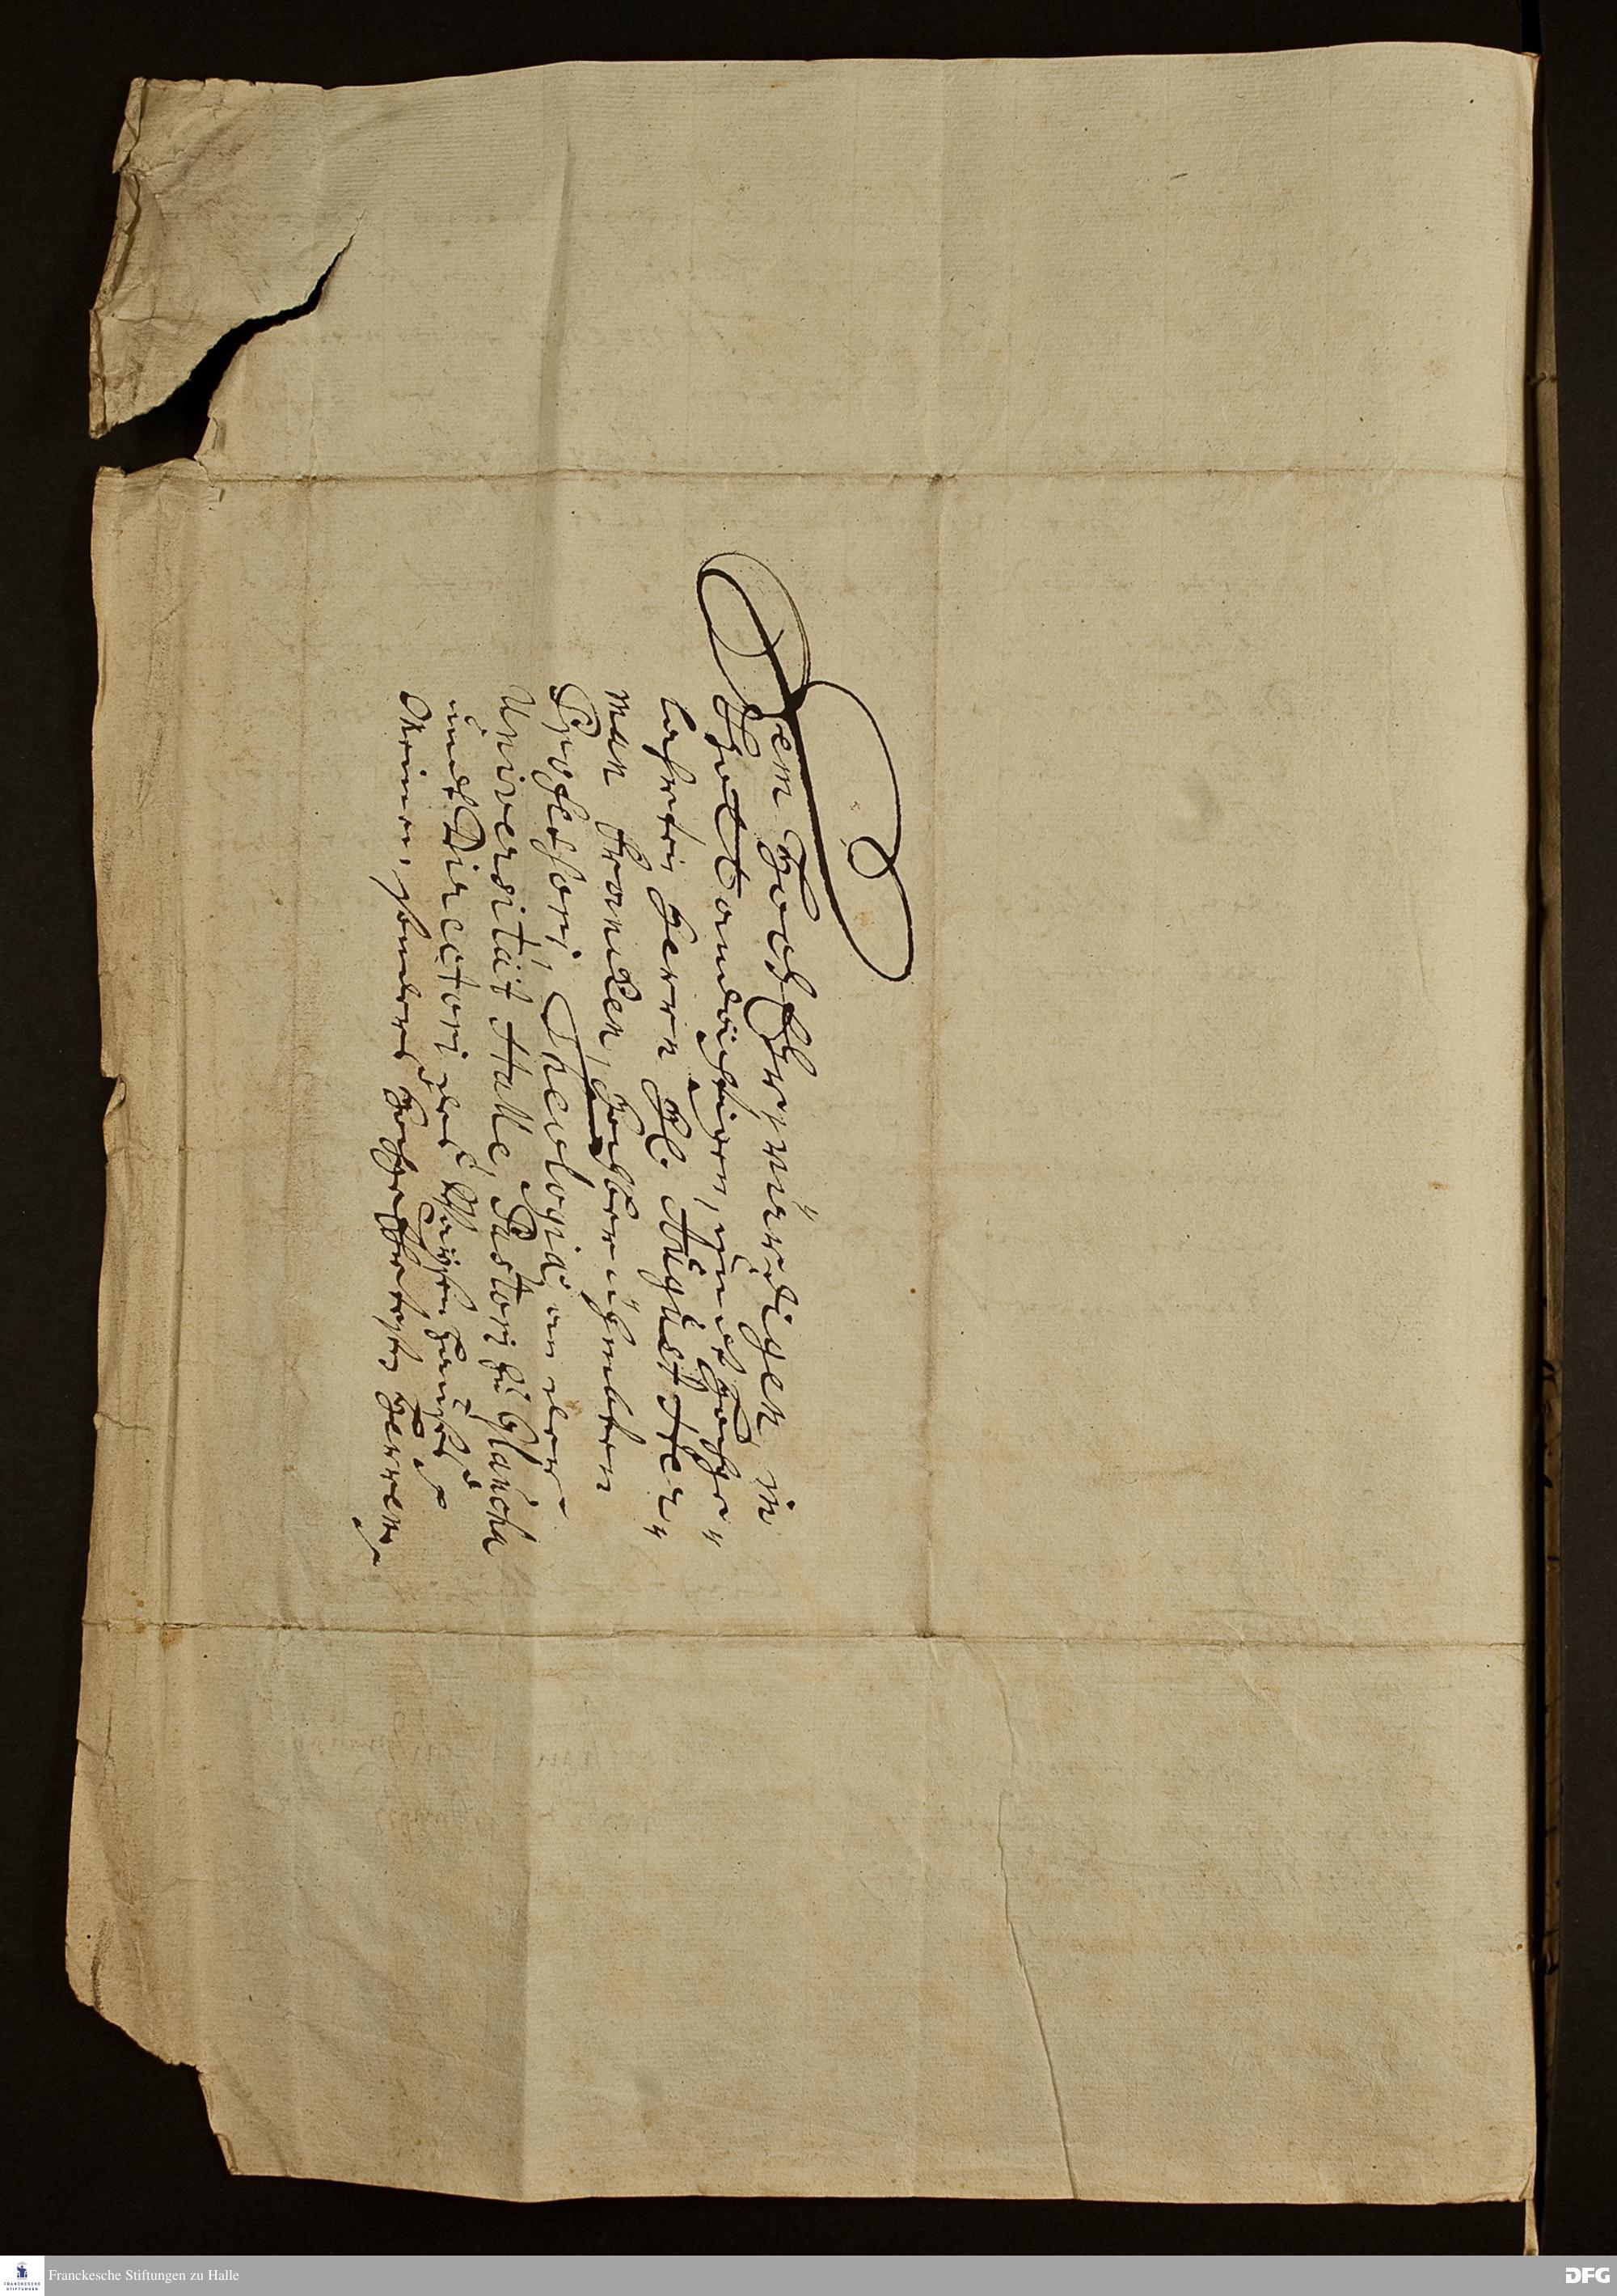 Dem HochEhrwürdigen, in
Gott andächtigen, und Hochge"
lahrten Herrn H. August Her"
man Francken, Hochberühmbten
Professori Theologiæ an der
Universität Halle, Pastori zu Glaucha
und Directori des Waysenhauses
Meinem, besonders Hochgeehrtesten Herren
Franckesche Stiftungen zu Halle
FRANCKESCHE
STIFTUNGEN
DFG